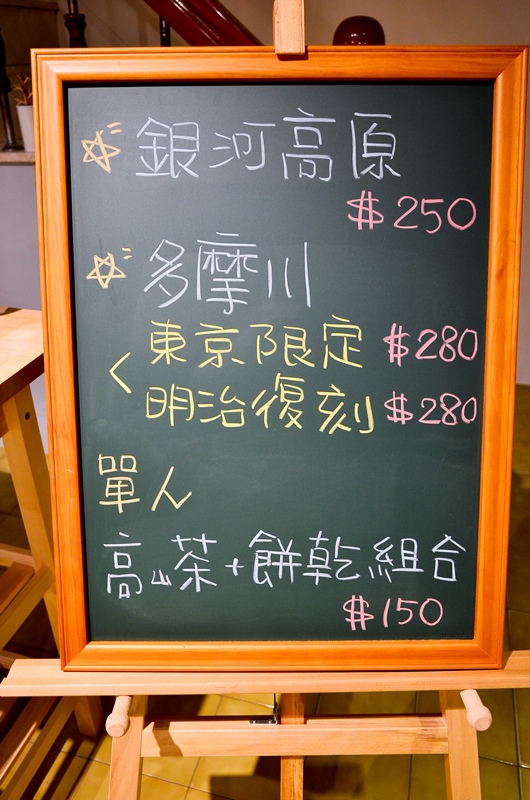 銀河高原
$250
多摩川
東京限定 $280
明治復刻 $280
單人
高山茶+餅乾組合
$150